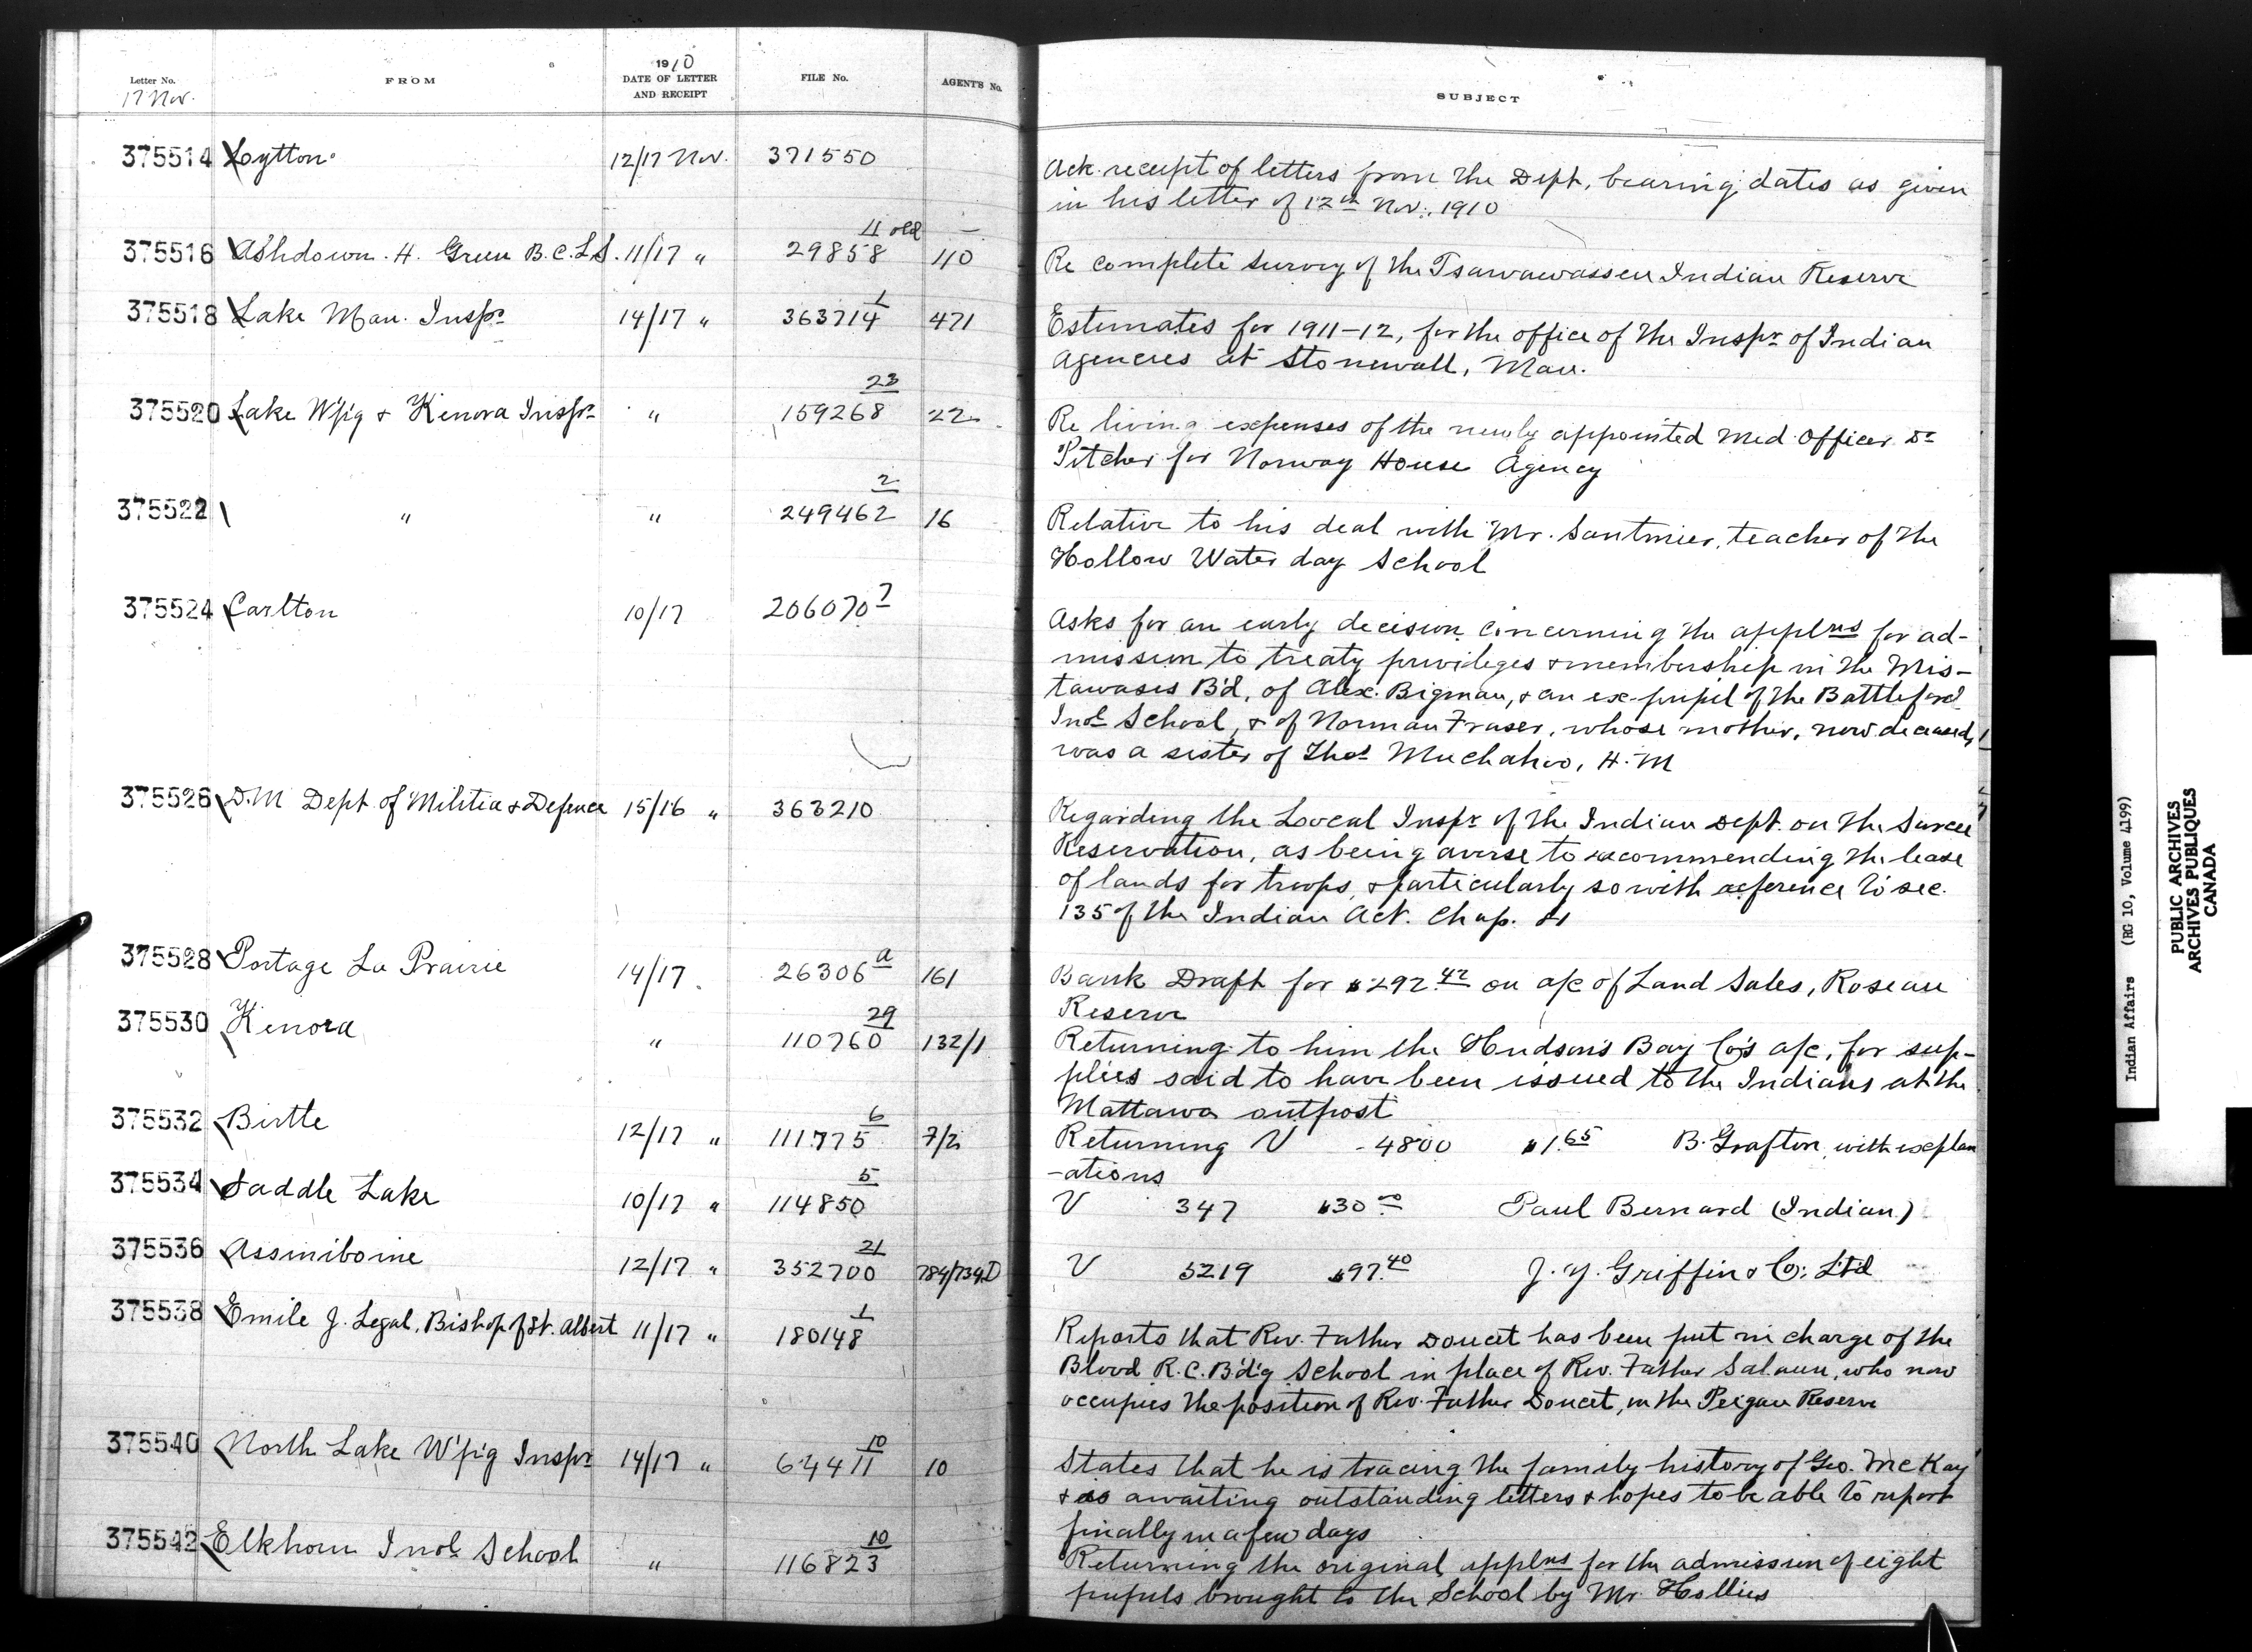 Letter No. FROM 1910 DATE OF LETTER AND RECEIPT FILE No. AGENT'S No. SUBJECT
17 Nov.
375514 Lytton 12/17 Nov. 371550 Ack. receipt of letters from the Dept, bearing dates as given
in his letter of 12th Nov. 1910
375516 Ashdown. H. Green B.C.L.S. 11/17 " 29858 4 old 110 Re complete survey of the Tsawawassen Indian Reserve
375518 Lake Man. Inspr 14/17 " 363714 1 471 Estimates for 1911-12, for the office of the Inspr of Indian
Agencies at Stonewall, Man.
375520 Lake W'p'g & Kenora Inspr " 159268 23 22 Re living expenses of the newly appointed Med. Officer Dr
Pitcher for Norway House Agency
375522 " " 249462 2 16 Relative to his deal with Mr. Santmier, teacher of the
Hollow Water day School
375524 Carlton 10/17 206070 7 Asks for an early decision concerning the applns for ad-
mission to treaty privileges & membership in the Mis-
tawasis B'd, of Alex. Bigman, & an ex-pupil of the Battleford
Indl School, & of Norman Fraser, whose mother, now deceased,
was a sister of Thos Muchahoo, H.M
375526 D.M Dept. of Militia & Defence 15/16 " 363210 Regarding the Local Inspr of the Indian Dept. on the Sarcee
Reservation, as being averse to recommending the lease
of lands for troops, & particularly so with reference to sec.
135 of the Indian Act. Chap. 81
375528 Portage La Prairie 14/17. 26306 a 161 Bank Draft for $292.42 on a/c of Land Sales, Roseau
Reserve
375530 Kenora " 110760 29 132/1 Returning to him the Hudson's Bay Co's a/c, for sup-
plies said to have been issued to the Indians at the
Mattawa outpost
375532 Birtle 12/17 " 111775 6 7/2 Returning V -4800 $1.65 B. Grafton, with explan
-ations
375534 Saddle Lake 10/17 " 114850 5 V 347 $30.00 Paul Bernard (Indian)
375536 Assiniboine 12/17 " 352700 21 784/734D V 5219 $97.40 J. Y. Griffin & Co. Ltd
375538 Emile J. Legal, Bishop of St. Albert 11/17 " 180148 1 Reports that Rev. Father Doucet has been put in charge of the
Blood R.C. B'd'g School in place of Rev. Father Salaun, who now
occupies the position of Rev. Father Doucet, on the Peigan Reserve
375540 North Lake W'p'g Inspr 14/17 " 64411 10 10 States that he is tracing the family history of Geo. McKay
& is awaiting outstanding letters & hopes to be able to report
finally in a few days
375542 Elkhorn Indl School " 116823 10 Returning the original applns for the admission of eight
pupils brought to the School by Mr. Hollies
Indian Affairs (RG 10, Volume 4199)
PUBLIC ARCHIVES
ARCHIVES PUBLIQUES
CANADA